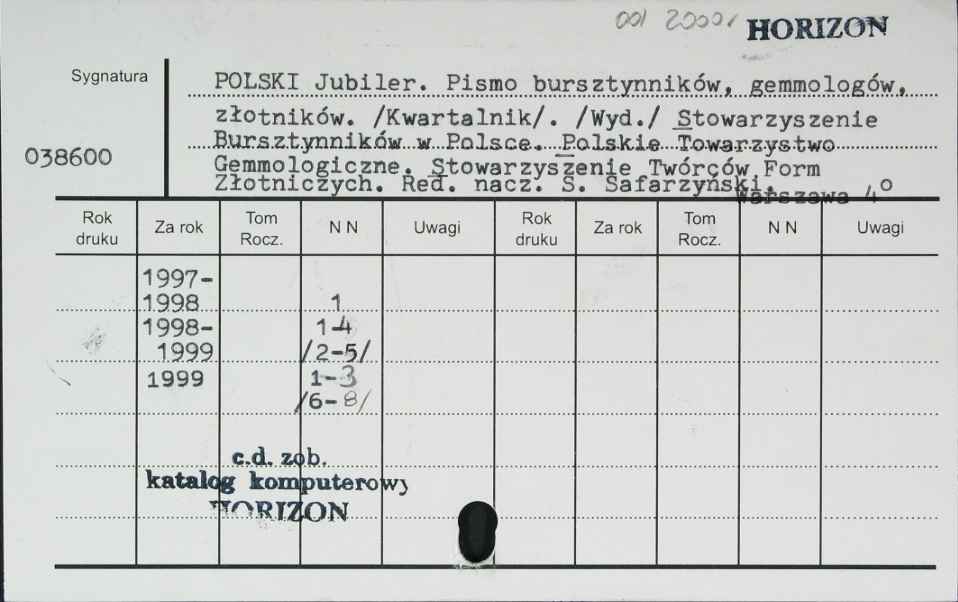 001 2000r HORIZON
Sygnatura
038600
POLSKI Jubiler. Pismo bursztynników, gemmologów,
złotników. /Kwartalnik/. /Wyd./ Stowarzyszenie
Bursztynników w Polsce. Polskie Towarzystwo
Gemmologiczne. Stowarzyszenie Twórców Form
Złotniczych. Red. nacz. S. Safarzyński.
Warszawa 4°
Rok druku Za rok Tom Rocz. N N Uwagi Rok druku Za rok Tom Rocz. N N Uwagi
1997-
1998 1
1998- 1-4
1999 /2-5/
1999 1-3
/6-8/
c.d. zob.
katalog komputerowy
HORIZON